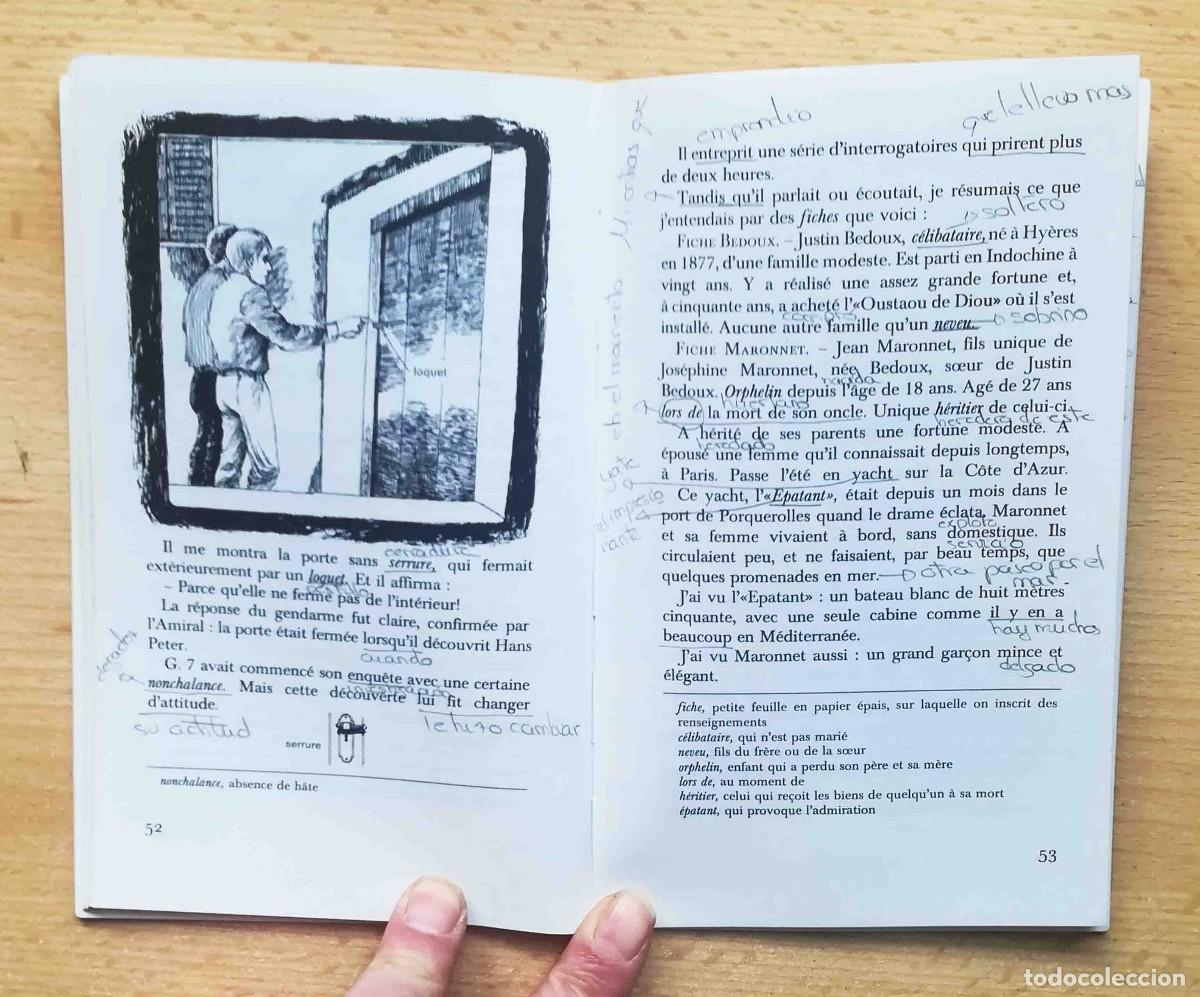 loquet
Il me montra la porte sans serrure, qui fermait
cerradura
extérieurement par un loquet. Et il affirma :
– Parce qu'elle ne ferme pas de l'intérieur!
La réponse du gendarme fut claire, confirmée par
l'Amiral : la porte était fermée lorsqu'il découvrit Hans
Peter.
cuando
G. 7 avait commencé son enquête avec une certaine
nonchalance. Mais cette découverte lui fit changer
d'attitude.
su actitud
le hizo cambiar
serrure
nonchalance, absence de hâte
52
emprendio
que le llevo mas
Il entreprit une série d'interrogatoires qui prirent plus
de deux heures.
Mientras que
Tandis qu'il parlait ou écoutait, je résumais ce que
j'entendais par des fiches que voici :
soltero
FICHE BEDOUX. – Justin Bedoux, célibataire, né à Hyères
en 1877, d'une famille modeste. Est parti en Indochine à
vingt ans. Y a réalisé une assez grande fortune et,
à cinquante ans, a acheté l'«Oustaou de Diou» où il s'est
compro
installé. Aucune autre famille qu'un neveu.
sobrino
FICHE MARONNET. – Jean Maronnet, fils unique de
Joséphine Maronnet, née Bedoux, sœur de Justin
nacida
Bedoux. Orphelin depuis l'âge de 18 ans. Agé de 27 ans
huerfano
en el momento
lors de la mort de son oncle. Unique héritier de celui-ci.
heredero de este
A hérité de ses parents une fortune modeste. A
heredado
épousé une femme qu'il connaissait depuis longtemps,
à Paris. Passe l'été en yacht sur la Côte d'Azur.
yate
Ce yacht, l'«Epatant», était depuis un mois dans le
el impresionante
port de Porquerolles quand le drame éclata. Maronnet
exploto
et sa femme vivaient à bord, sans domestique. Ils
servicio
circulaient peu, et ne faisaient, par beau temps, que
quelques promenades en mer.
otra paseo por el
mar.
J'ai vu l'«Epatant» : un bateau blanc de huit mètres
cinquante, avec une seule cabine comme il y en a
hay muchos
beaucoup en Méditerranée.
J'ai vu Maronnet aussi : un grand garçon mince et
delgado
élégant.
fiche, petite feuille en papier épais, sur laquelle on inscrit des
renseignements
célibataire, qui n'est pas marié
neveu, fils du frère ou de la sœur
orphelin, enfant qui a perdu son père et sa mère
lors de, au moment de
héritier, celui qui reçoit les biens de quelqu'un à sa mort
épatant, qui provoque l'admiration
53
todocoleccion